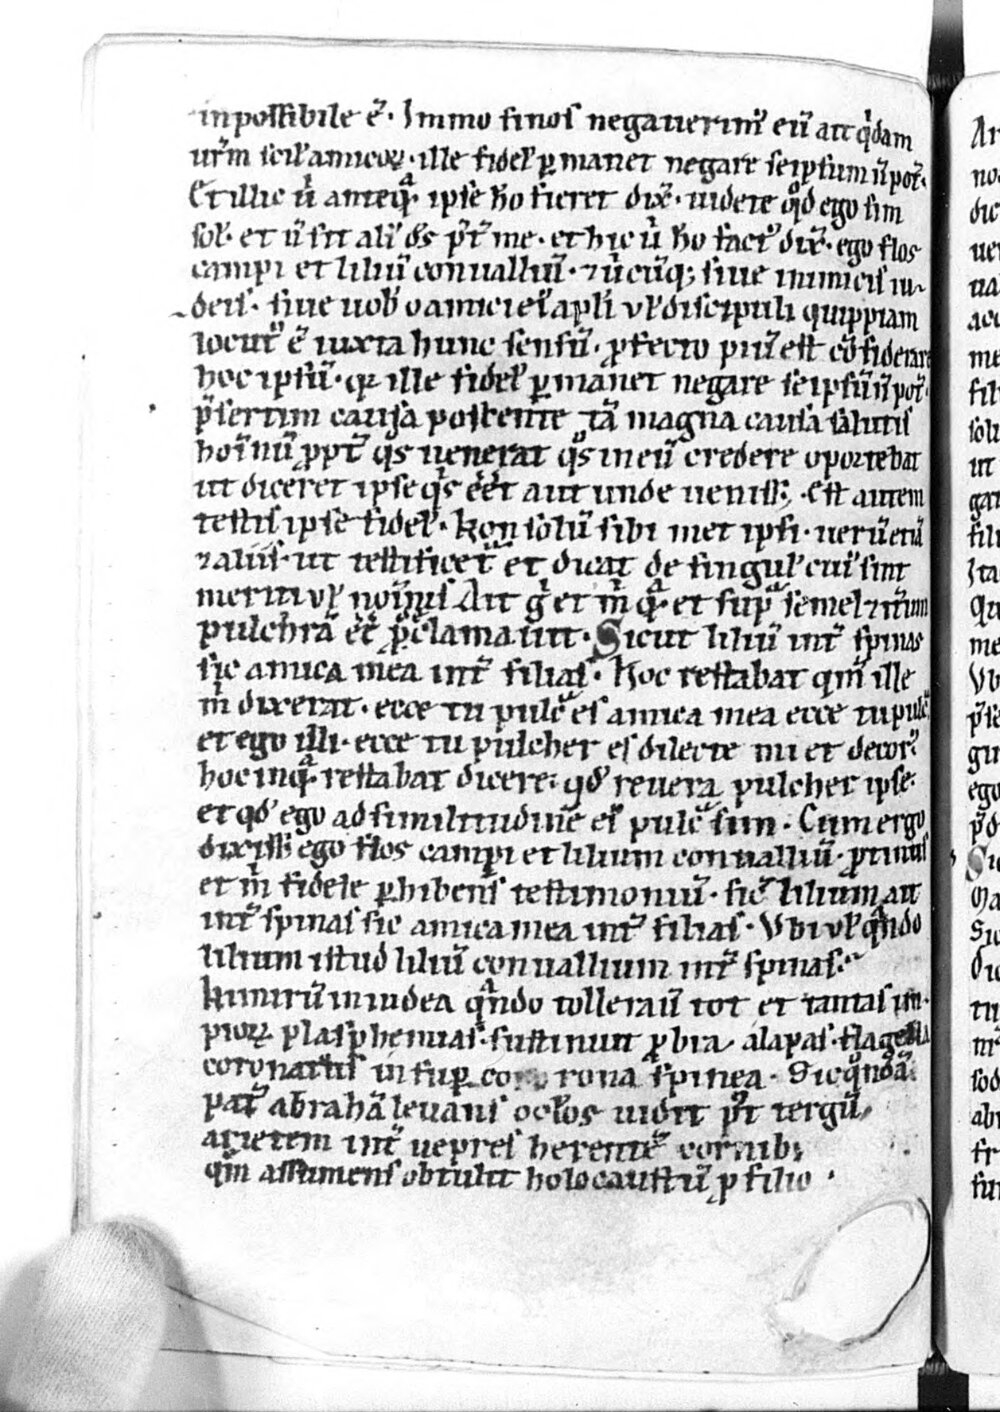 inpossibile ē. Immo si nos negauerim᷒ eū ait q̇dam
ur̄m scil' amicoꝝ. ille fidel' ꝑmanet negare seipsum ñ pot̄.
Et illic ů anteqͣ ipse hō fieret dix̄. uidete qd̊ ego sim
sol᷒. et ñ sit ali᷒ ds̄ p̄t̄ me. et hic ů hō fact᷒ dix̄. ego flos
campi et liliū conualliū. ⁊ ůcūqꝫ siue inimicis iu-
deis. siue uob̄ o amici et apl̄i ul' discipuli quippiam
locut᷒ ē iuxta hunc sensū. ꝓfecto piū est cōsiderare
hoc ipsū. qꝛ ille fidel' ꝑmanet negare seipsū ñ pot̄.
p̄sertim causa poscente tā magna causa salutis
hoīnū ꝓpt̄ q̊s uenerat q̊s in eū credere oportebat
ut diceret ipse qͥs eēt aut unde uenissꝫ. Est autem
testis ipse fidel'. Non solū sibi met ipsi. uerū etiā
⁊ aliis. ut testificet᷒ et dicat de singul' cui᷒ sint
meriti ul' nōīnis Ait ġ et m̄ qͣ et suꝑ semel ⁊ itūm
pulchrā eē p̄clamauit. Sicut liliū int̄ spinas
sic amica mea int̄ filias. Hoc restabat qm̄ ille
m̊ dixerat. ecce tu pulcͣ es amica mea ecce tu pulcͣ
et ego illi. ecce tu pulcher es dilecte mi et decor᷒
hoc inqͣ restabat dicere. qd̊ reuera pulcher ipse.
et qd̊ ego ad similitudinē ei᷒ pulcͣ sim. Cum ergo
dixissꝫ ego flos campi et lilium conualliū. ꝓtinus
et m̊ fidele ꝑhibens testimoniū. sic̄ lilium ait
int̄ spinas sic amica mea int̄ filias. Vbi ul' qͣndo
lilium istud liliū conuallium int̄ spinas.
Nimirū in iudea qͣndo tollerauit tot et tantas im-
pioꝝ plasphemias. sustinuit ꝓbra alapas. flagella
coronatus insuꝑ corona spinea. Sic qͦndā
pat̄ abrahā leuans oclōs uidit p᷒t tergū
arietem int̄ uepres herentē cornibꝫ
qm̄ assumens obtulit holocaustū ꝓ filio.